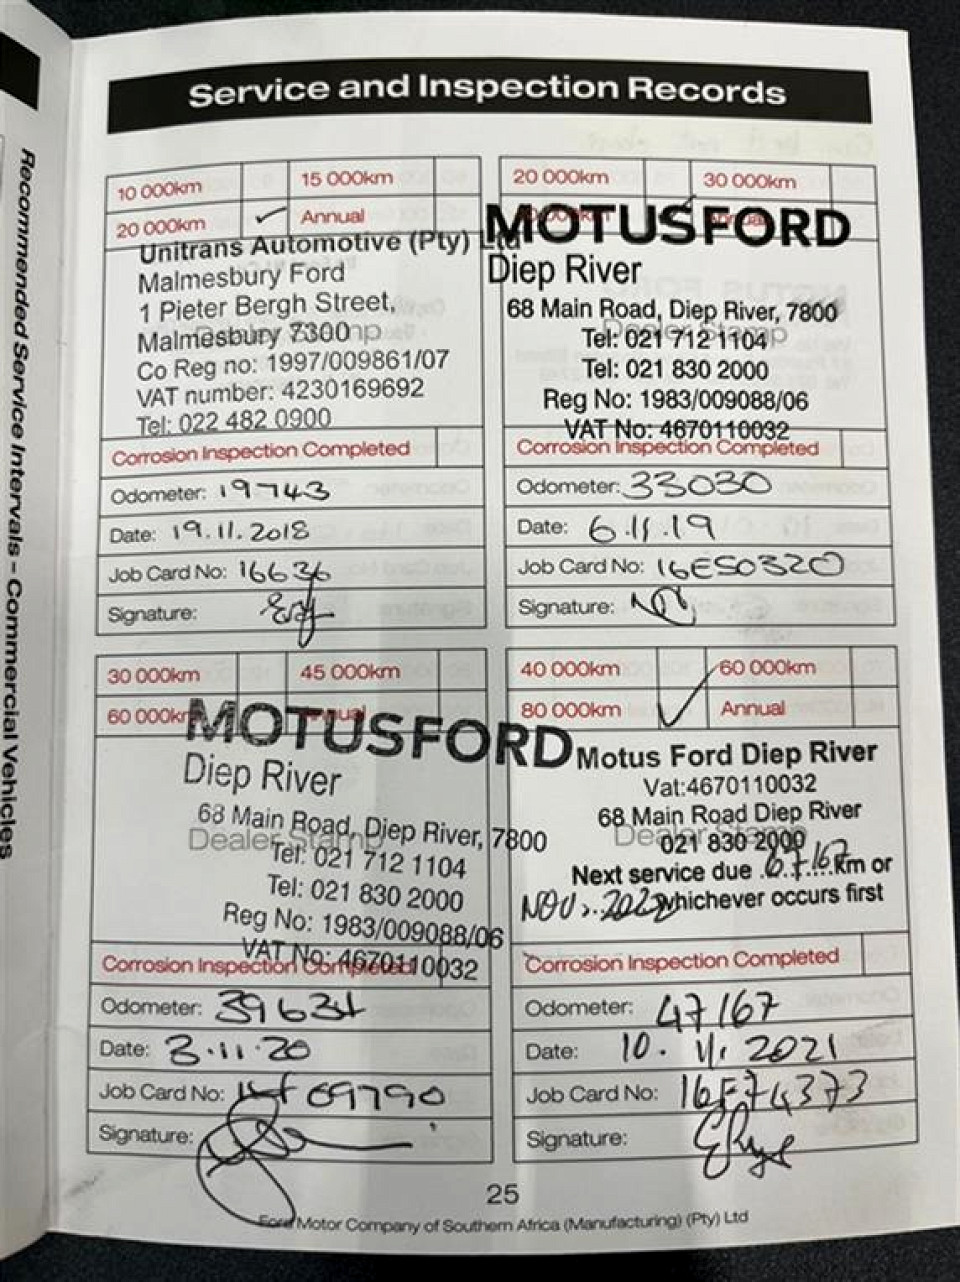 Recommended Service Intervals - Commercial Vehicles
Service and Inspection Records
10 000km 15 000km
20 000km ✓ Annual
Unitrans Automotive (Pty) Ltd
Malmesbury Ford
1 Pieter Bergh Street,
Malmesbury 7300
Dealer Stamp
Co Reg no: 1997/009861/07
VAT number: 4230169692
Tel: 022 482 0900
Corrosion Inspection Completed
Odometer: 19743
Date: 19.11.2018
Job Card No: 16636
Signature:
20 000km 30 000km
✓ Annual
MOTUSFORD
Diep River
68 Main Road, Diep River, 7800
Dealer Stamp
Tel: 021 712 1104
Tel: 021 830 2000
Reg No: 1983/009088/06
VAT No: 4670110032
Corrosion Inspection Completed
Odometer: 33030
Date: 6.11.19
Job Card No: 16ES0320
Signature:
30 000km 45 000km
60 000km Annual
MOTUSFORD
Diep River
68 Main Road, Diep River, 7800
Dealer Stamp
Tel: 021 712 1104
Tel: 021 830 2000
Reg No: 1983/009088/06
VAT No: 4670110032
Corrosion Inspection Completed
Odometer: 39631
Date: 3.11.20
Job Card No: 69790
Signature:
40 000km 60 000km
80 000km ✓ Annual
Motus Ford Diep River
Vat:4670110032
68 Main Road Diep River
Dealer Stamp
021 830 2000
Next service due 67167 Km or
NOV 2022 whichever occurs first
Corrosion Inspection Completed
Odometer: 47167
Date: 10.11.2021
Job Card No: 16F74373
Signature:
25
Ford Motor Company of Southern Africa (Manufacturing) (Pty) Ltd